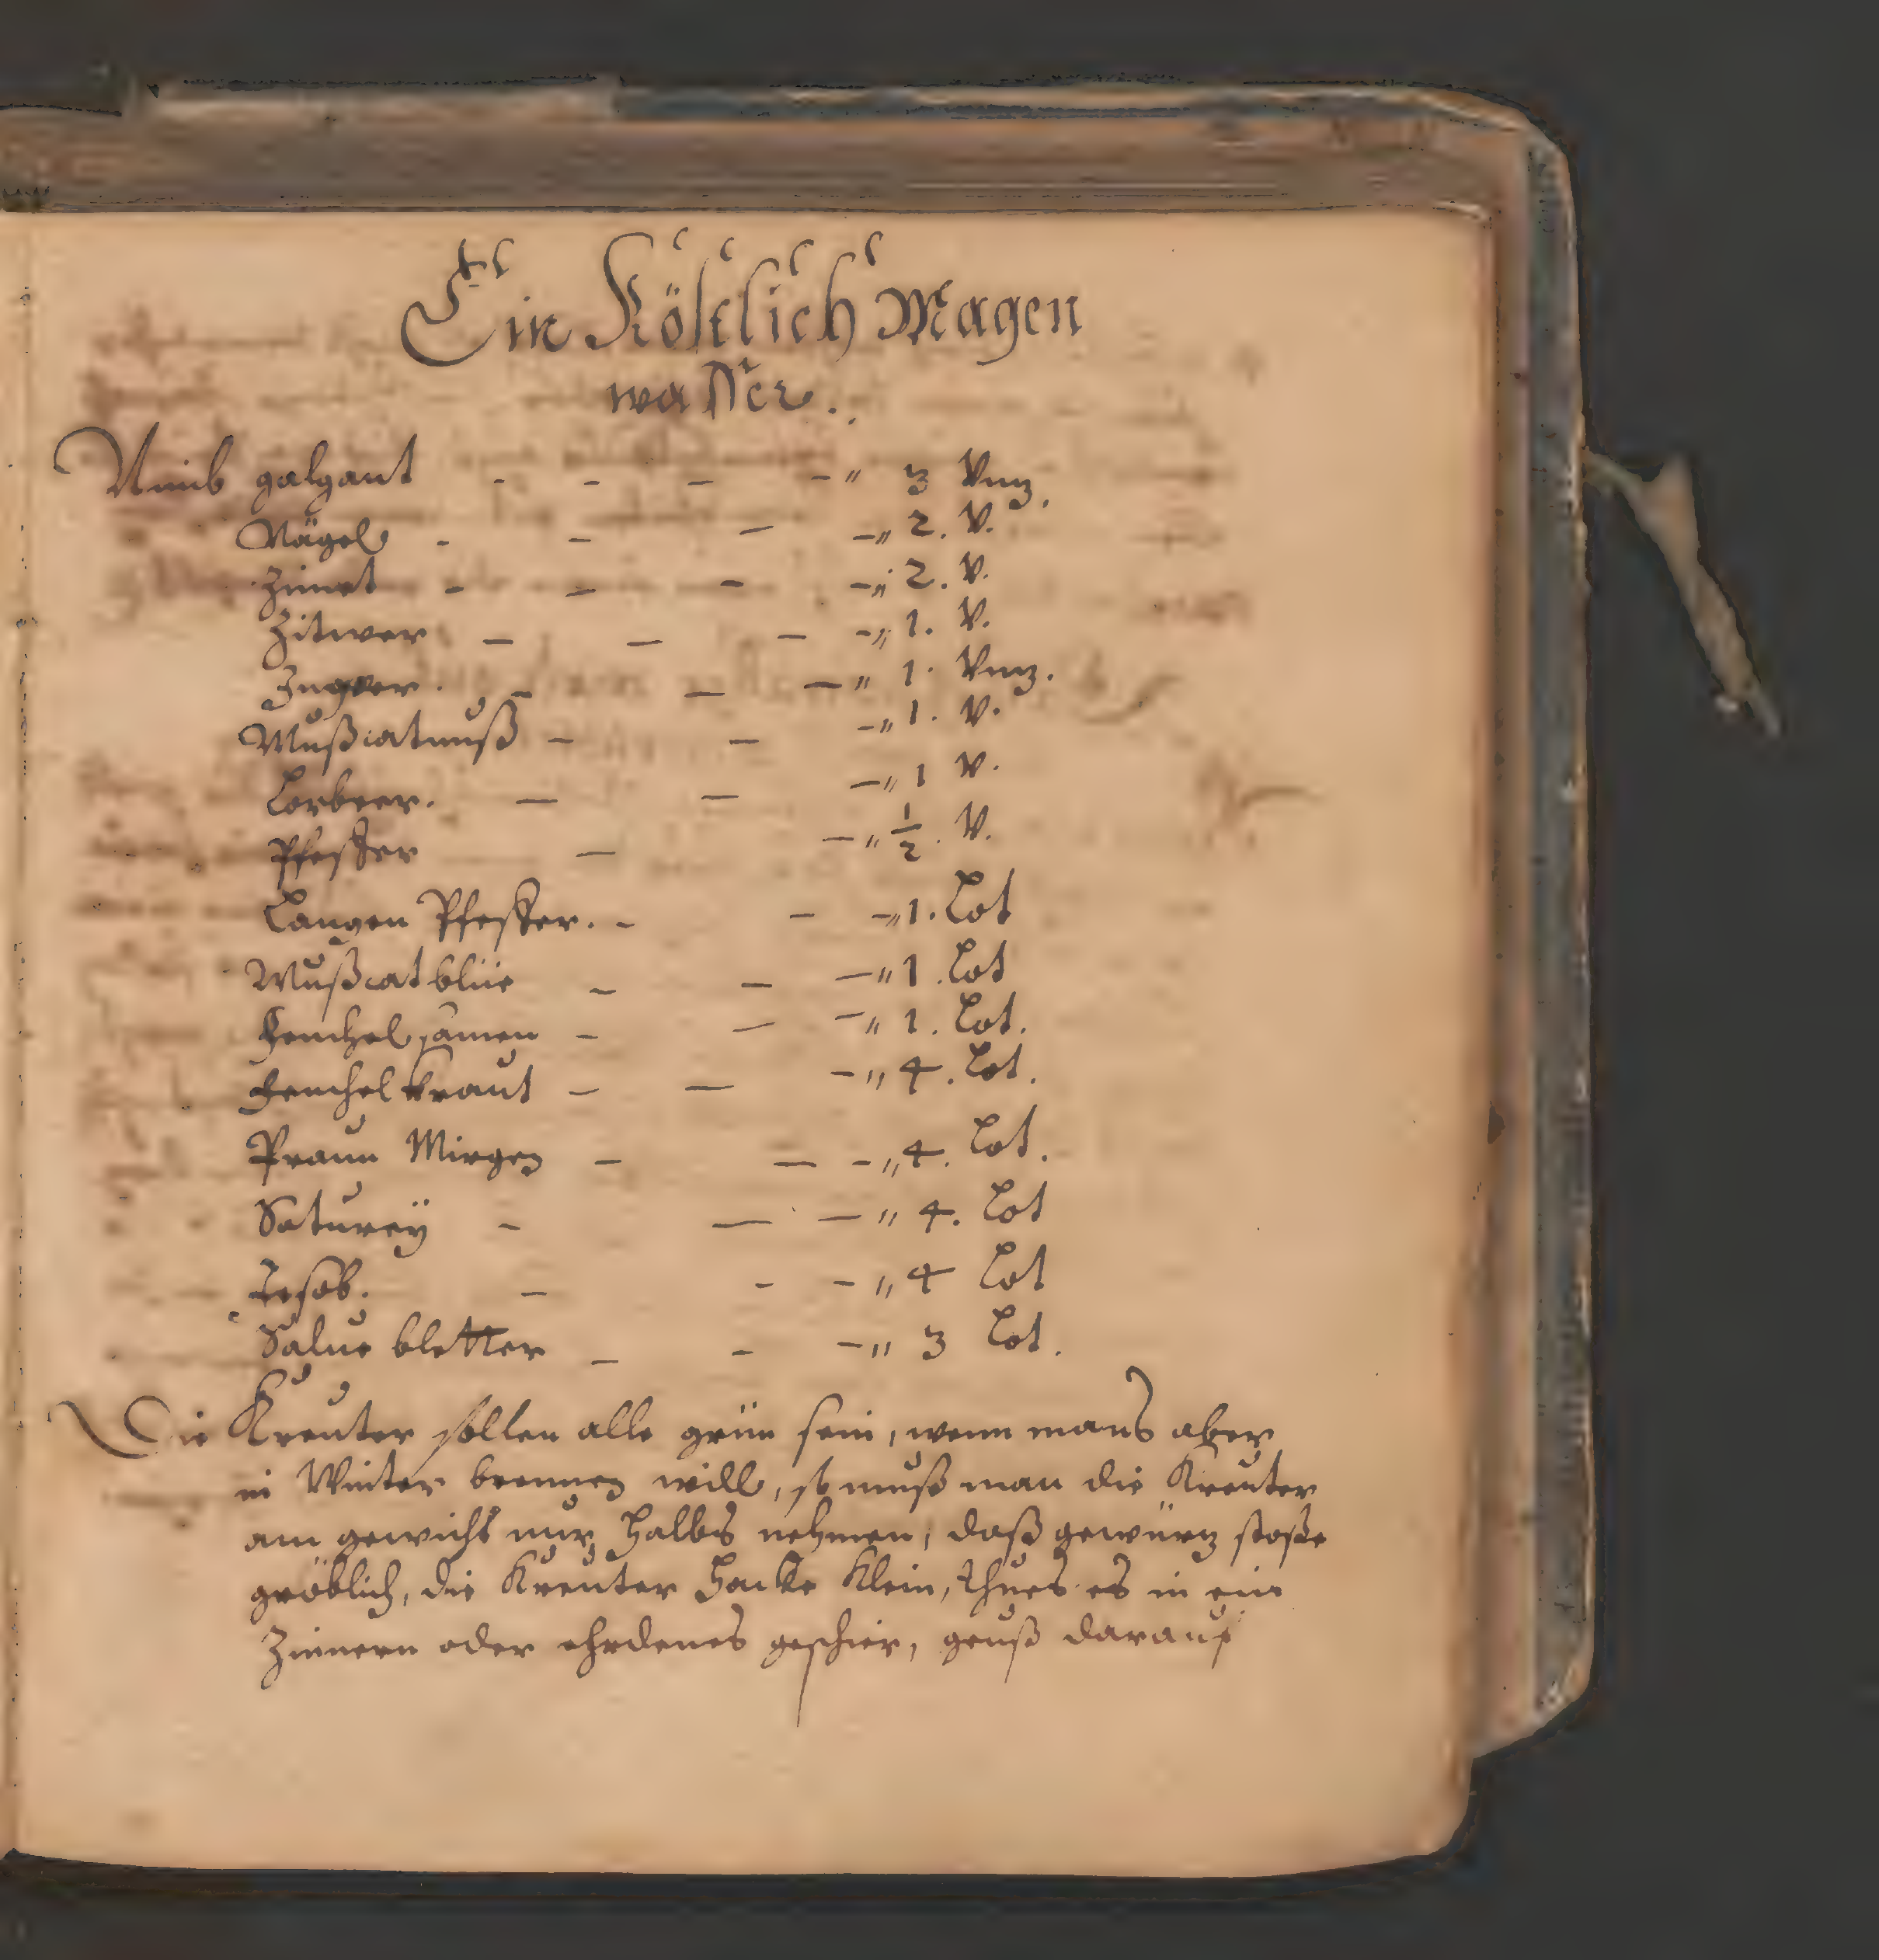 Ein Köstlich Magen
wasser.
Nimb galgant - - - -„ 3 Vnz.
Nägel - - - -„ 2. V.
Zimet - - - -„ 2. V.
Zitwer - - - -„ 1. V.
Ingwer. - - -„ 1. Vnz.
Mußcatnuß - - -„ 1. V.
Lorbeer. - - -„ 1 V.
Pfeffer - -„ ½. V.
Langen Pfeffer. - - -„ 1. Lot
Mußcatblüe - - -„ 1. Lot
Fenchel samen - - -„ 1. Lot.
Fenchel kraut - - -„ 4. Lot.
Praun Mirgen - - -„ 4. Lot.
Saturey - - -„ 4. Lot
Isob. - - -„ 4 Lot
Salue bletter - - -„ 3 Lot.
Die Kreuter sollen alle grün sein, wenn mans aber
in Winter brennen will, so muß man die Kreuter
am gewicht nur halbs nehmen, daß gewürz stoße
gröblich, die Kreuter hacke klein, thues es in ein
Zinnern oder ehrdenes geschier, geuß darauf